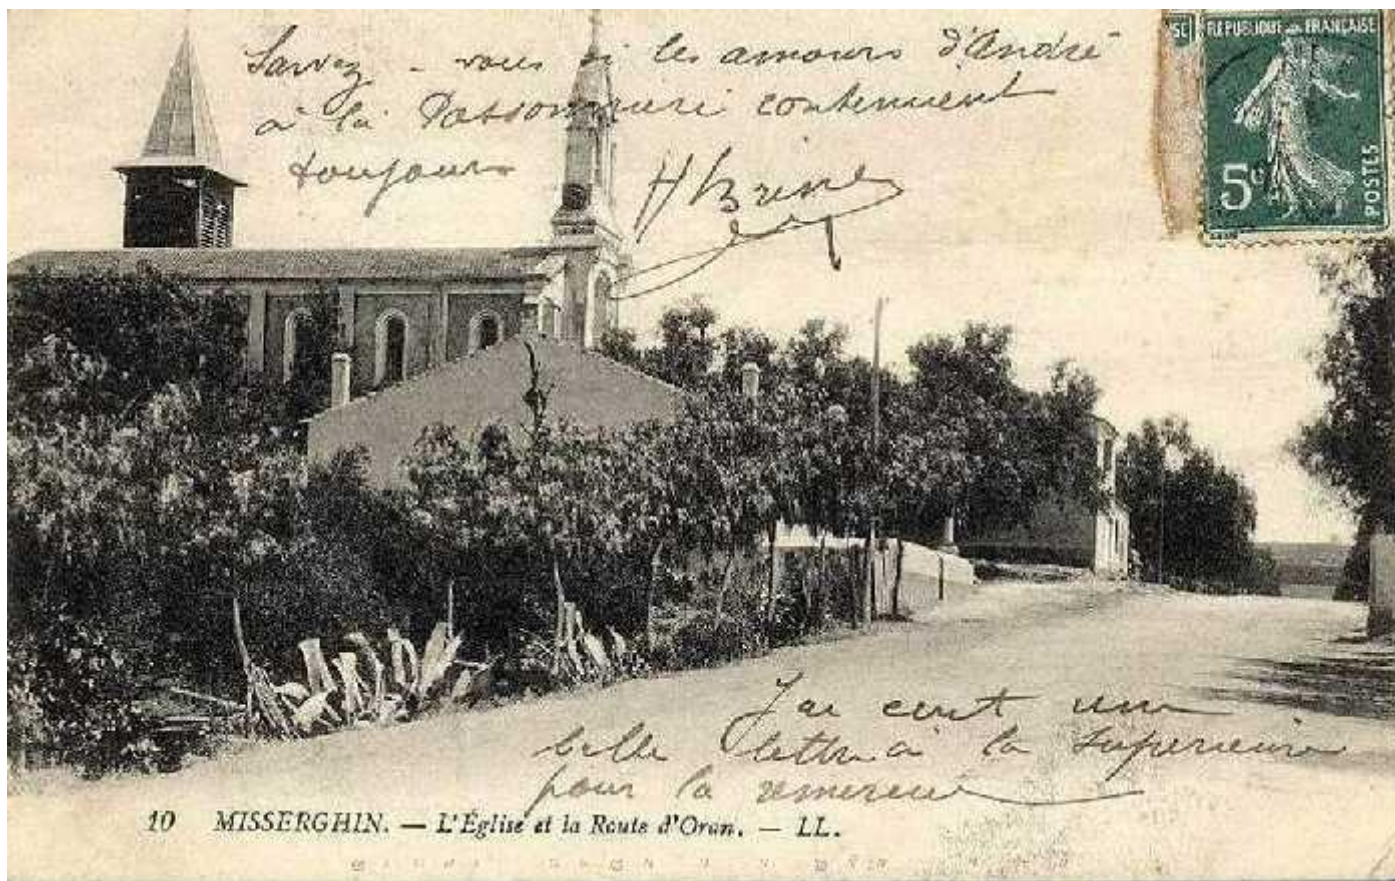 Savez-vous si les amours d'André
à la continuent
toujours
H Brisne
SE
RÉPUBLIQUE FRANÇAISE
5c
POSTES
J'ai écrit une
belle lettre à la supérieure
pour la remercier
10 MISSERGHIN. — L'Église et la Route d'Oran. — LL.